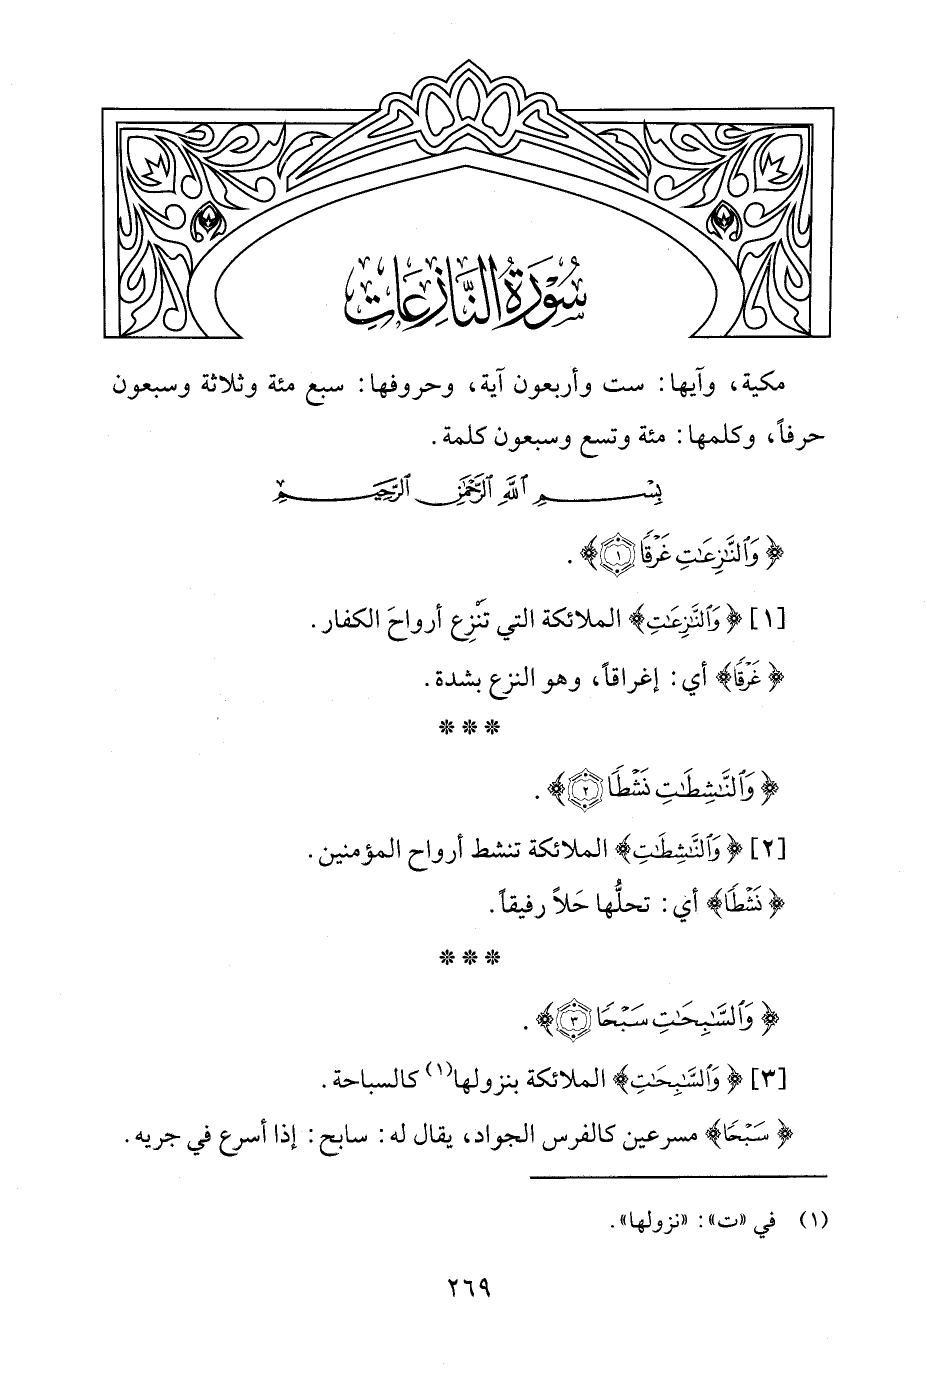 سُورَةُ النَّازِعَاتِ
مكية، وآيها: ست وأربعون آية، وحروفها: سبع مئة وثلاثة وسبعون
حرفاً، وكلمها: مئة وتسع وسبعون كلمة.
بِسْمِ ٱللَّهِ ٱلرَّحْمَٰنِ ٱلرَّحِيمِ
﴿وَٱلنَّٰزِعَٰتِ غَرْقًا ١﴾.
[١] ﴿وَٱلنَّٰزِعَٰتِ﴾ الملائكة التي تَنْزِع أرواحَ الكفار.
﴿غَرْقًا﴾ أي: إغراقاً، وهو النزع بشدة.
* * *
﴿وَٱلنَّٰشِطَٰتِ نَشْطًا ٢﴾.
[٢] ﴿وَٱلنَّٰشِطَٰتِ﴾ الملائكة تنشط أرواح المؤمنين.
﴿نَشْطًا﴾ أي: تحلُّها حَلاً رفيقاً.
* * *
﴿وَٱلسَّٰبِحَٰتِ سَبْحًا ٣﴾.
[٣] ﴿وَٱلسَّٰبِحَٰتِ﴾ الملائكة بنزولها(١) كالسباحة.
﴿سَبْحًا﴾ مسرعين كالفرس الجواد، يقال له: سابح: إذا أسرع في جريه.
(١) في «ت»: «نزولها».
٢٦٩